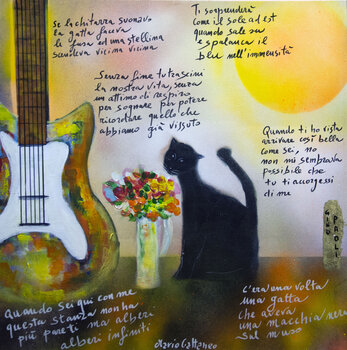 Se la chitarra suonavo
la gatta faceva
le fusa ed una stellina
scendeva vicina vicina
Ti sorprenderà
come il sole ad est
quando sale su
e spalanca il
blu nell'immensità
Senza fine tu trascini
la nostra vita, senza
un attimo di respiro
per sognare per potere
ricordare quello che
abbiamo già vissuto
Quando ti ho vista
arrivare così bella
come sei, no
non mi sembrava
possibile che
tu ti accorgessi
di me
GINO
PAOLI
Quando sei qui con me
questa stanza non ha
più pareti ma alberi
alberi infiniti
c'era una volta
una gatta
che aveva
una macchia nera
sul muso
Dario Cattaneo